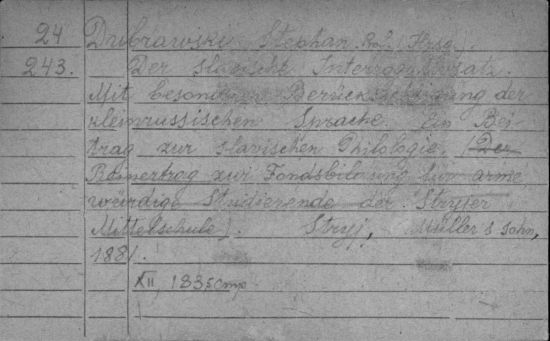 24 Dubrawski, Stephan Prof. (Hrsg.).
243. Der slavische Interrogativsatz.
Mit besonderer Berücksichtigung der
kleinrussischen Sprache. Ein Bei
trag zur slavischen Philologie. (Der
Reinertrag zur Fondsbildung für arme
würdige Studierende der Stryjer
Mittelschule). Stryj, Müller & Sohn,
1881.
XII, 183 S.